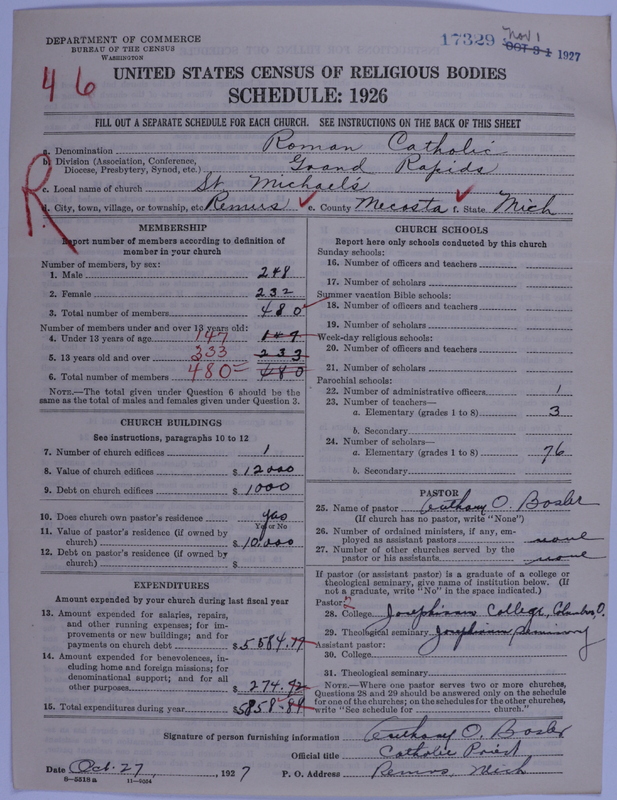 DEPARTMENT OF COMMERCE
BUREAU OF THE CENSUS
WASHINGTON
17329 Nov 1
OCT 31 1927
46
UNITED STATES CENSUS OF RELIGIOUS BODIES
SCHEDULE: 1926
FILL OUT A SEPARATE SCHEDULE FOR EACH CHURCH. SEE INSTRUCTIONS ON THE BACK OF THIS SHEET
R
a. Denomination Roman Catholic
b. Division (Association, Conference, Diocese, Presbytery, Synod, etc.) Grand Rapids
c. Local name of church St. Michael's
d. City, town, village, or township, etc Remus e. County Mecosta f. State Mich
MEMBERSHIP
Report number of members according to definition of
member in your church
Number of members, by sex:
1. Male 248
2. Female 232
3. Total number of members 480
Number of members under and over 13 years old:
4. Under 13 years of age 147
5. 13 years old and over 333 233
6. Total number of members 480 480
NOTE.—The total given under Question 6 should be the
same as the total of males and females given under Question 3.
CHURCH BUILDINGS
See instructions, paragraphs 10 to 12
7. Number of church edifices 1
8. Value of church edifices $ 12000
9. Debt on church edifices $ 1000
10. Does church own pastor's residence yes
Yes or No
11. Value of pastor's residence (if owned by
church) $ 10,000
12. Debt on pastor's residence (if owned by
church) $
EXPENDITURES
Amount expended by your church during last fiscal year
13. Amount expended for salaries, repairs,
and other running expenses; for im-
provements or new buildings; and for
payments on church debt $ 5584.
14. Amount expended for benevolences, in-
cluding home and foreign missions; for
denominational support; and for all
other purposes $ 274.92
15. Total expenditures during year $ 5858.84
CHURCH SCHOOLS
Report here only schools conducted by this church
Sunday schools:
16. Number of officers and teachers
17. Number of scholars
Summer vacation Bible schools:
18. Number of officers and teachers
19. Number of scholars
Week-day religious schools:
20. Number of officers and teachers
21. Number of scholars
Parochial schools:
22. Number of administrative officers 1
23. Number of teachers—
a. Elementary (grades 1 to 8) 3
b. Secondary
24. Number of scholars—
a. Elementary (grades 1 to 8) 76
b. Secondary
PASTOR
25. Name of pastor Anthony O. Bosler
(If church has no pastor, write "None")
26. Number of ordained ministers, if any, em-
ployed as assistant pastors none
27. Number of other churches served by the
pastor or his assistants none
If pastor (or assistant pastor) is a graduate of a college or
theological seminary, give name of institution below. (If
not a graduate, write "No" in the space indicated.)
Pastor:
28. College Josephinum College, Columbus, O.
29. Theological seminary Josephinum Seminary
Assistant pastor:
30. College
31. Theological seminary
NOTE.—Where one pastor serves two or more churches,
Questions 28 and 29 should be answered only on the schedule
for one of the churches; on the schedules for the other churches,
write "See schedule for church."
Signature of person furnishing information Anthony O. Bosler
Official title Catholic Priest
Date Oct. 27, 1927 P. O. Address Remus, Mich
8-5518a 11-9064